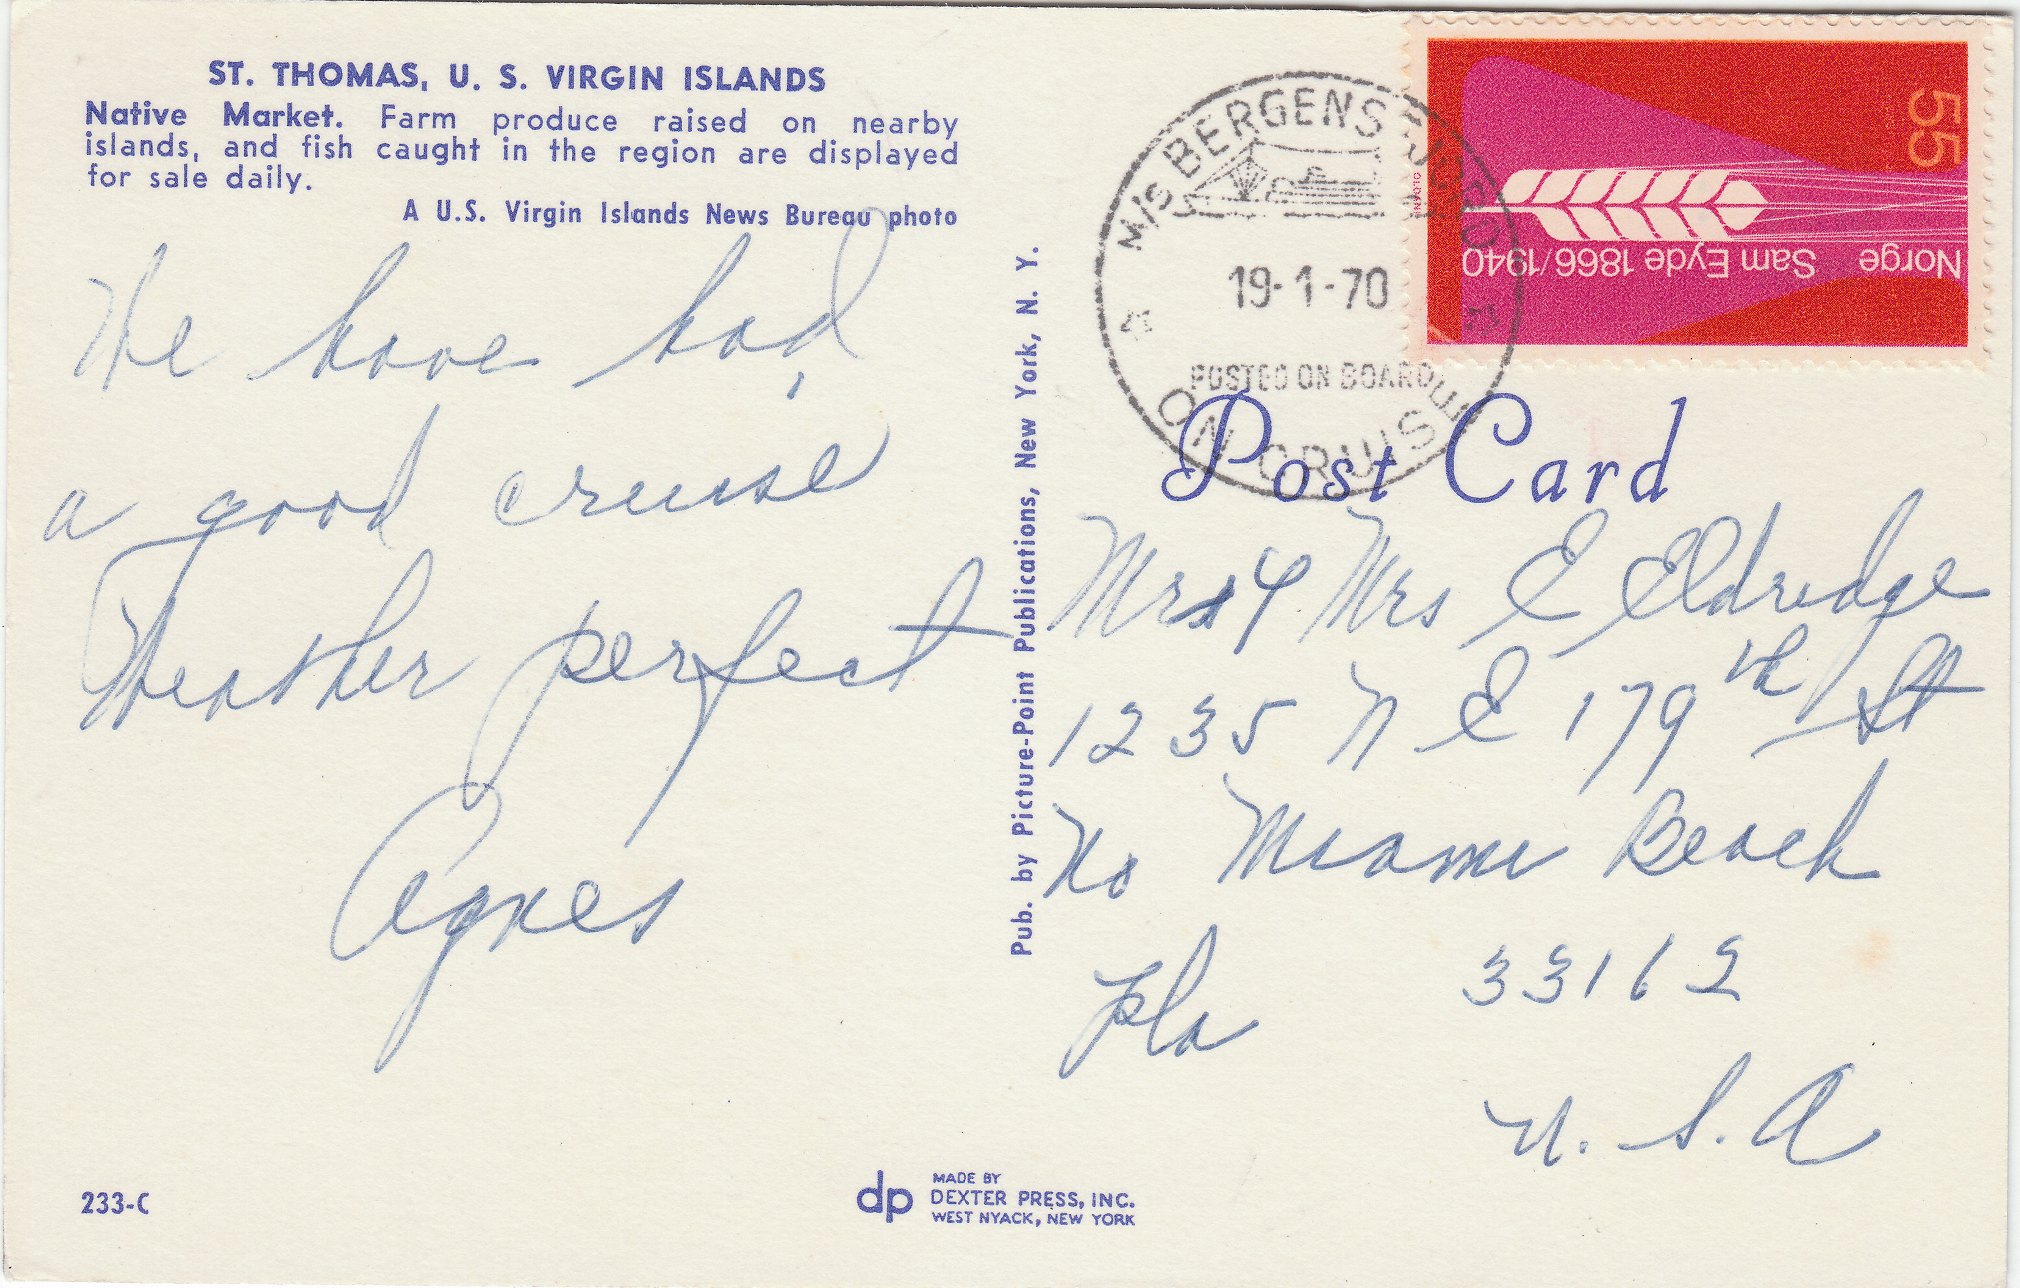 ST. THOMAS, U. S. VIRGIN ISLANDS
Native Market. Farm produce raised on nearby
islands, and fish caught in the region are displayed
for sale daily.
A U.S. Virgin Islands News Bureau photo
We have had
a good cruise
Weather perfect
Agnes
233-C
Pub. by Picture-Point Publications, New York, N. Y.
dp
MADE BY
DEXTER PRESS, INC.
WEST NYACK, NEW YORK
M/S BERGENSFJORD
19-1-70
POSTED ON BOARD
ON CRUISE
55
Norge Sam Eyde 1866/1940
Post Card
Mr & Mrs E Eldridge
1235 N E 179th St
No Miami Beach
Fla 33162
U.S.A